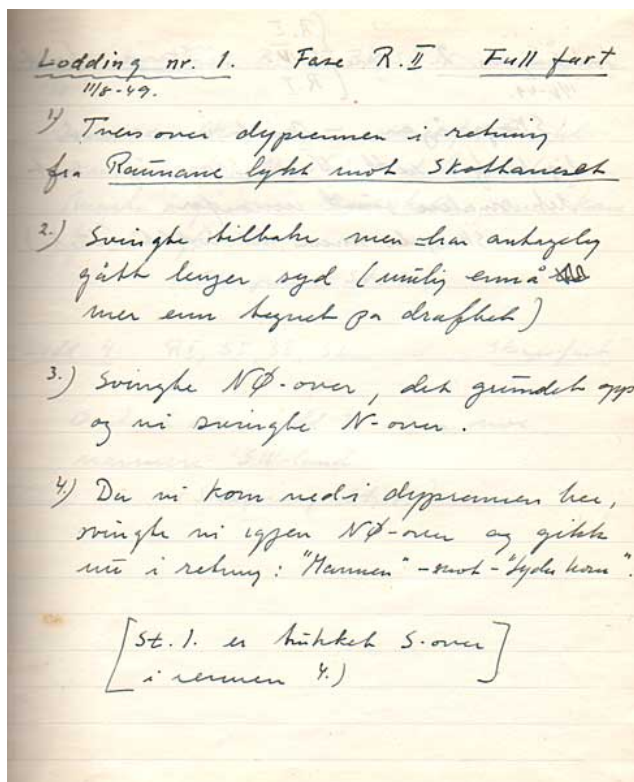 Lodding nr. 1. Fase R.II Full fart
11/8-49.
1) Tvers over dyprennen i retning
fra Raunane lykt mot Skothaneset
2.) Svingte tilbake men har antagelig
gått lenger syd (mulig ennå
mer enn tegnet på draftet)
3.) Svingte NØ-over, det grundet opp
og vi svingte N-over.
4.) Da vi kom ned i dyprennen her,
svingte vi igjen NØ-over og gikk
nu i retning: "Mannen" - mot - "Sydu horn".
[St. 1. er trukket S-over
i rennen 4.)]